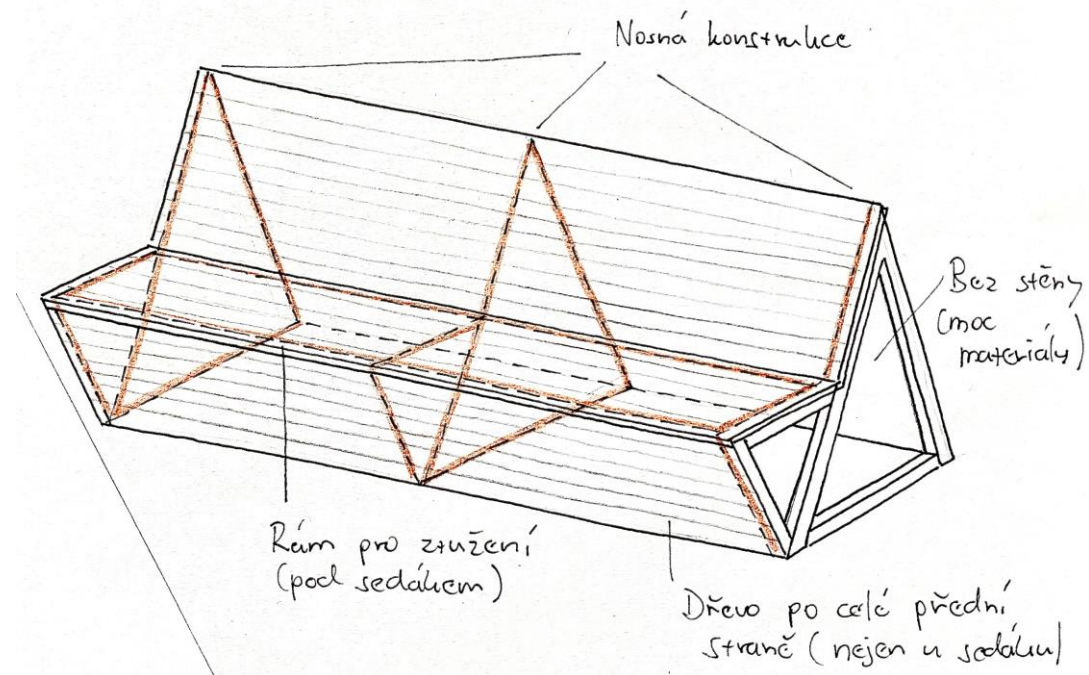 Nosná konstrukce
Bez stěny
(moc
materiály)
Rám pro ztužení
(pod sedákem)
Dřevo po celé přední
straně (nejen u sedáku)